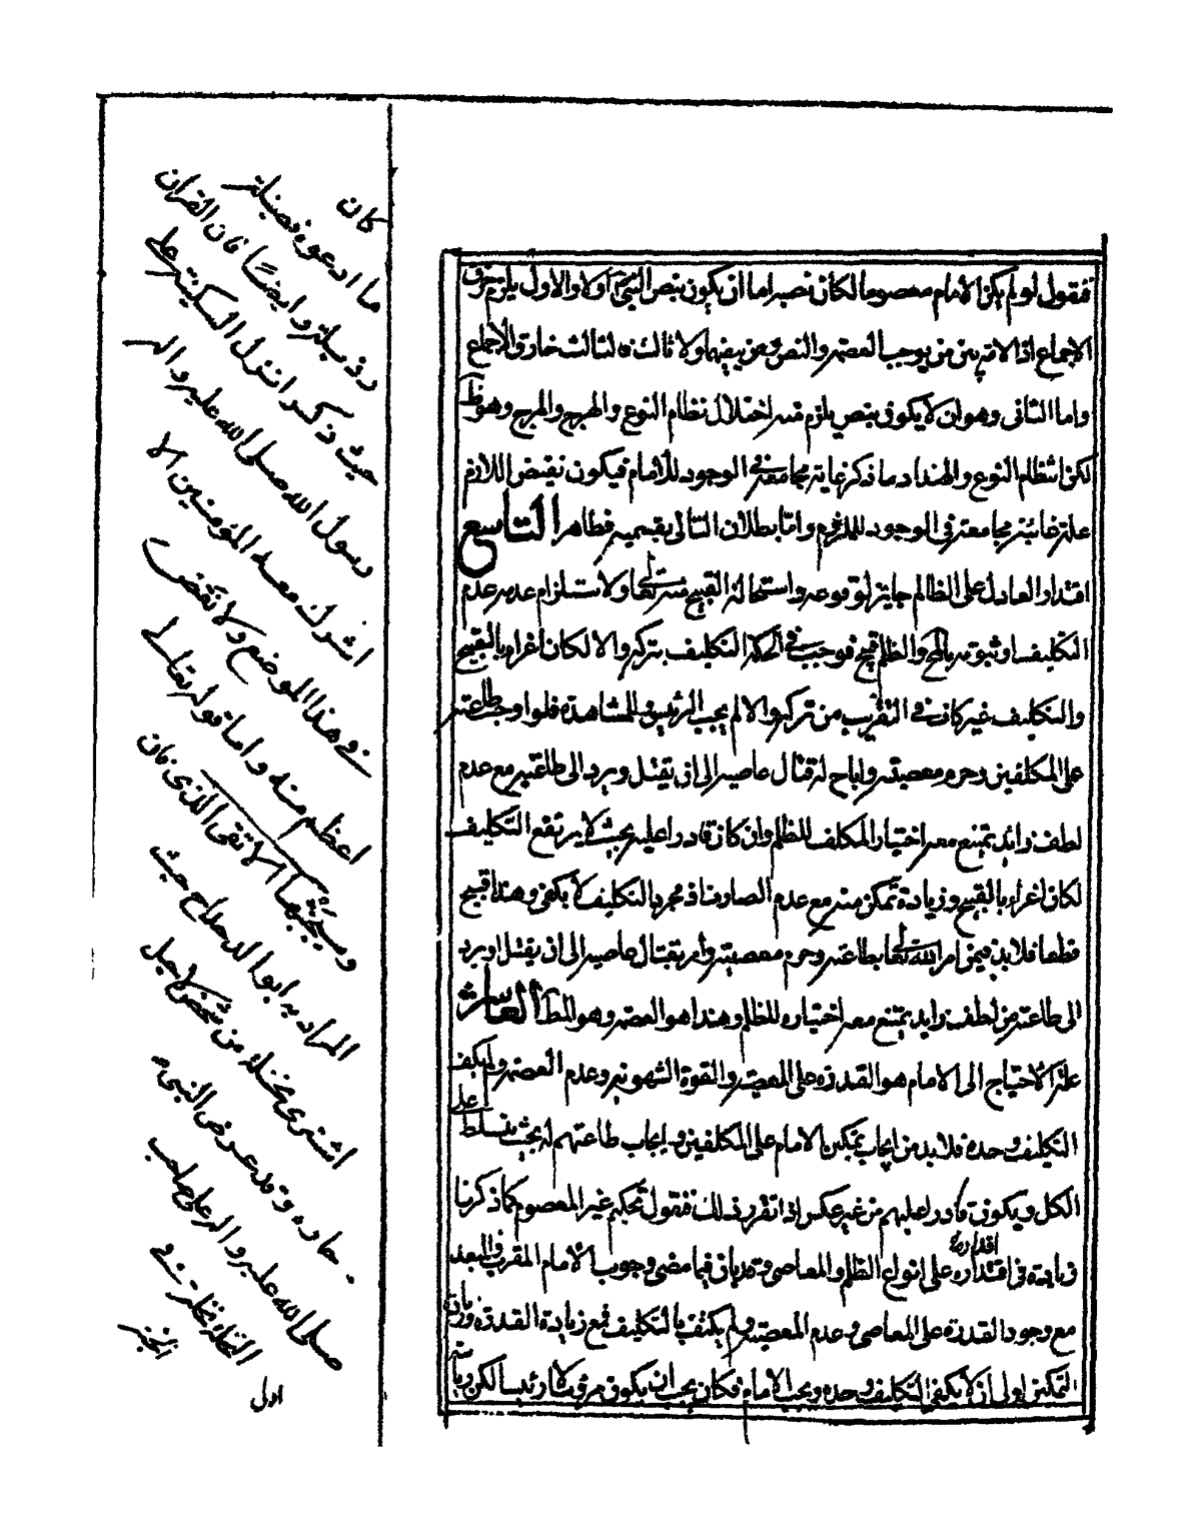 فنقول لو لم يكن الامام معصوما لكان نصبه اما ان يكون بنص النبي او لا والاول يلزم خرق
الاجماع اذ الامة بين من يوجب العصمة والنص ومن ينفيهما ولا ثالث فالثالث خارق الاجماع
واما الثاني وهو ان لا يكون بنص يلزم منه اختلال نظام النوع والهرج والمرج وهو
لكن انتظام النوع والهداد ما ذكر غايته مجامعة في الوجود للامام فيكون نقيض اللازم
علة غائية مجامعة في الوجود للملزوم واما بطلان التالى بقسميه فظاهر التاسع
اقتدار العادل على الظالم جايز لوقوعه واستحالة القبيح منه تعالى ولاستلزام عدمه عدم
التكليف او ثبوته بالمحال والظلم قبيح فوجب في الحكمة التكليف بتركه والا لكان اغراء بالقبيح
والتكليف غير كاف في التقريب من تركه والا لم يجب الرئيس وللمشاهدة فلو اوجب طاعته
على المكلفين وحرم معصيته واباح له قتال عاصيه الى ان يقتل ويرد الى طاعته مع عدم
لطف زايد يمتنع معه اختيار المكلف للظلم وان كان قادرا عليه بحيث لا يرتفع التكليف
لكان اغراء بالقبيح وزيادة تمكن منه مع عدم الصارف اذ مجرد التكليف لا يكفي وهذا قبيح
قطعا فلا بد فيمن امر الله تعالى بطاعته وحرم معصيته وامر بقتال عاصيه الى ان يقتل او يرد
الى طاعته من لطف زايد يمتنع معه اختياره للظلم وهذا هو العصمة وهو المطلوب العاشر
علة الاحتياج الى الامام هو القدرة على المعصية والقوة الشهوية وعدم العصمة ولم يكف
التكليف وحده فلا بد من ايجاب تمكين الامام على المكلفين وايجاب طاعتهم له بحيث يتسلط على
الكل ويكون قادرا عليهم من غير عكس اذا تقرر ذلك فنقول تحكيم غير المعصوم كما ذكرنا
زيادة في اقتداره على انواع الظلم والمعاصي وقد بان فيما مضى وجوب الامام المقرب والمبعد
اقداره
مع وجود القدرة على المعاصي وعدم المعصية ولم يكتف بالتكليف فمع زيادة القدرة وزيادة
التمكين اولى ان لا يكفي التكليف وحده ويجب الامام فكان يجب ان يكون مرؤسا لا رئيسا لكن رياسته
كان
ما ادعوه فضيلة
رذيلة وايضا فان القران
حيث ذكر انزل السكينة على
رسول الله صلى الله عليه واله
اشرك معه المؤمنين الا
في هذا الموضع ولا نقض
اعظم منه واما قوله تعالى
وسيجنبها الاتقى الذى فان
المراد به ابو الدحداح حيث
اشترى نخلة من شخص لاجل
جاره وقد عرض النبي
صلى الله عليه واله على صاحب
النخلة نخلة في
الجنة
اول